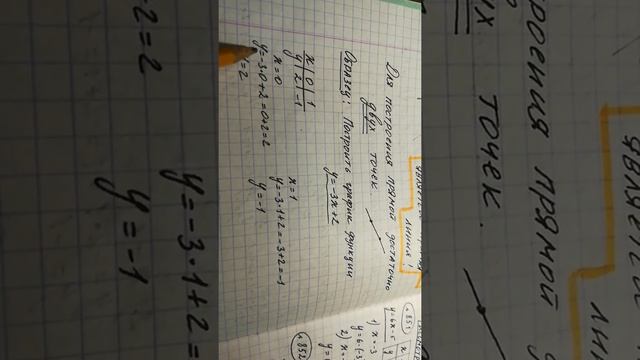 линия!
Для построения прямой достаточно
двух точек
Образец: Построить график функции
y = -3x + 2
x | 0 | 1
y | 2 | -1
x = 0
y = -3·0 + 2 = 0 + 2 = 2
y = 2
x = 1
y = -3·1 + 2 = -3 + 2 = -1
y = -1
№851
y = 6x - 5
1) x = -3
2) x =
№852